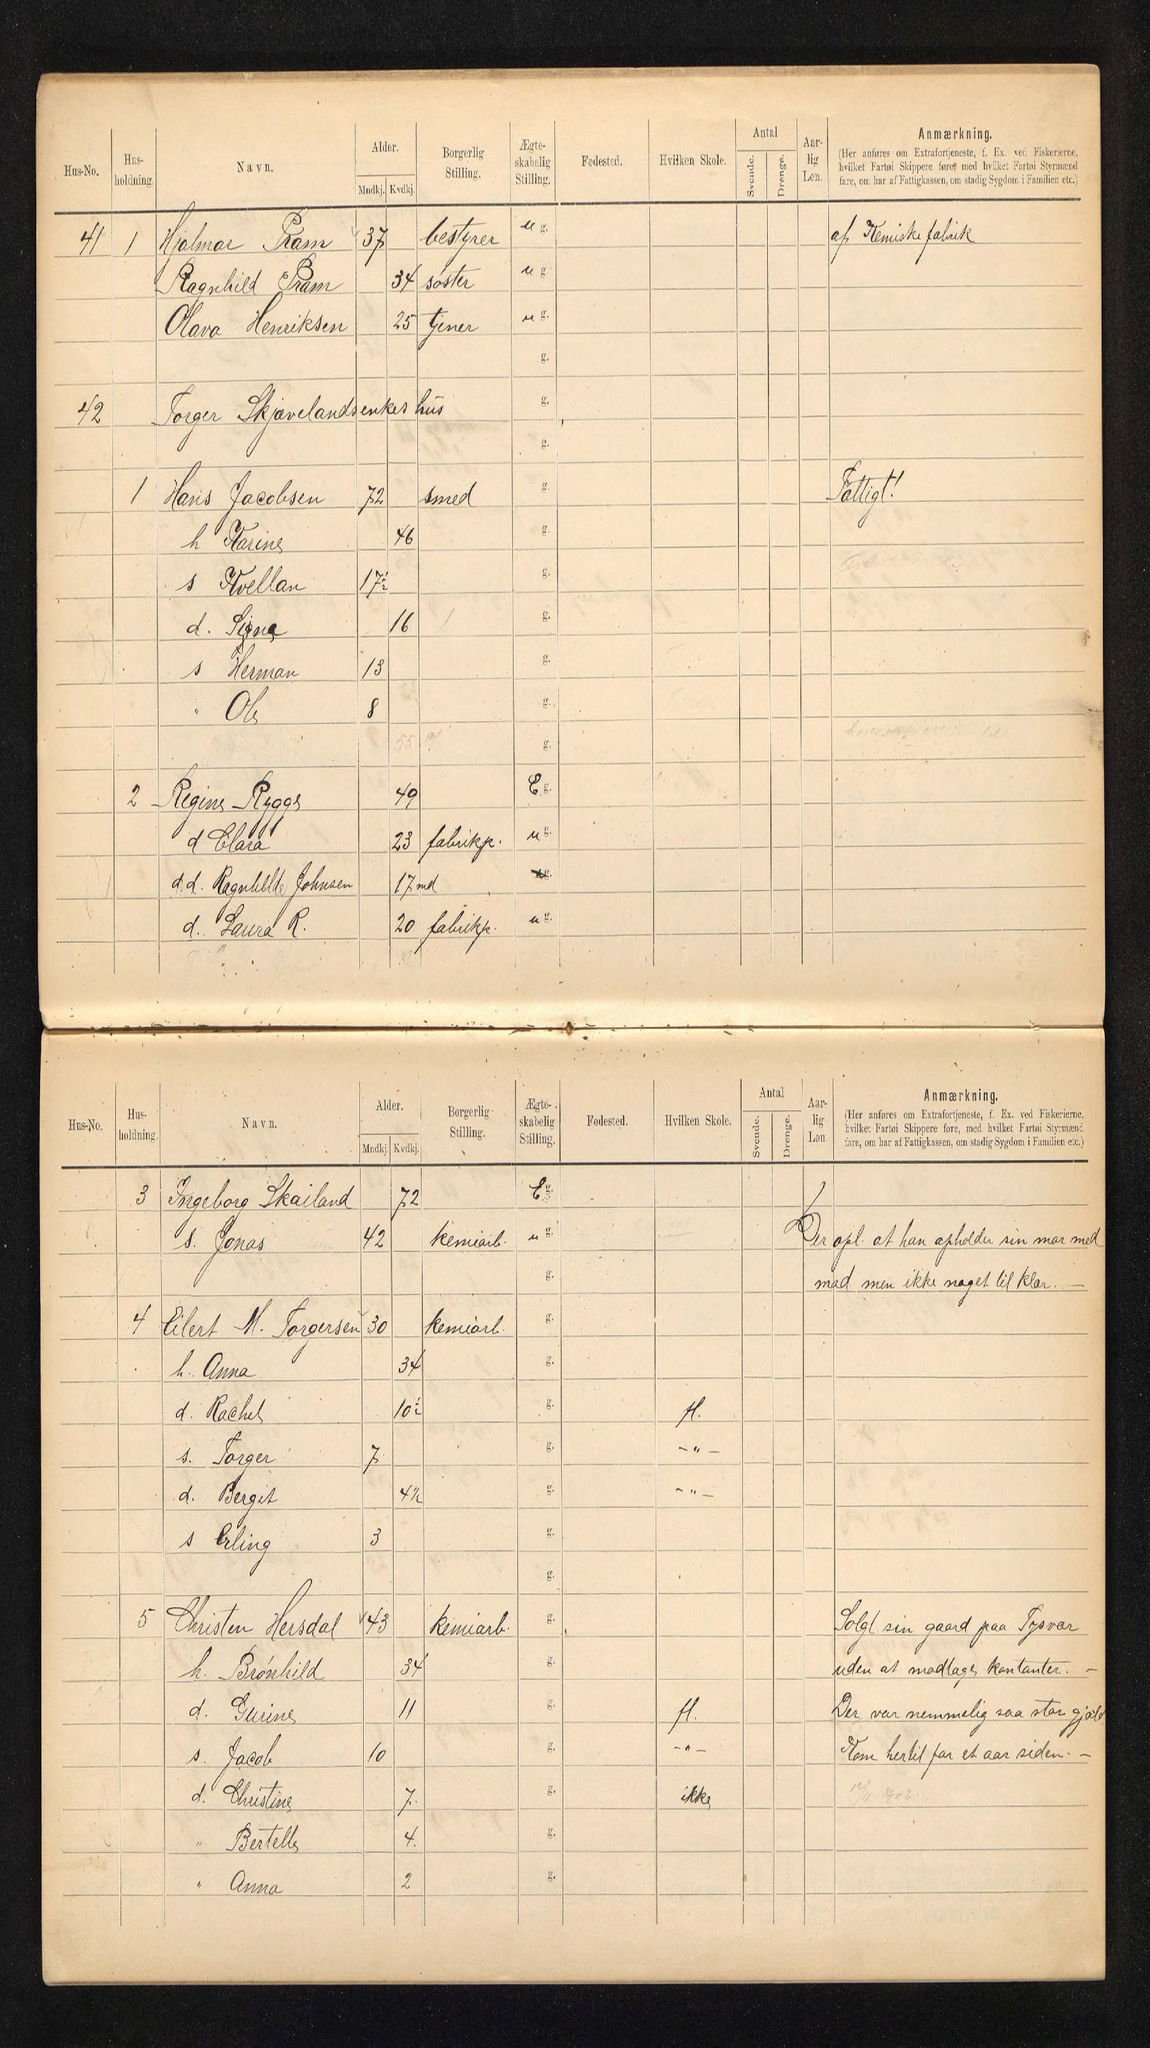 Hus-No. Hus-holdning. Navn. Alder. Mndkj. Kvdkj. Borgerlig Stilling. Ægte-skabelig Stilling. Fødested. Hvilken Skole. Antal Svende. Drenge. Aar-lig Løn. Anmærkning.
(Her anføres om Extrafortjeneste, f. Ex. ved Fiskerierne,
hvilket Fartøi Skippere føre, med hvilket Fartøi Styrmænd
fare, om har af Fattigkassen, om stadig Sygdom i Familien etc.)
41 1 Hjalmar Pram 37 bestyrer u g. af Kemiske fabrik
Ragnhild Pram 34 søster u g.
Olava Henriksen 25 tjener u g.
g.
42 Torger Skjævelandsenkes hus g.
g.
1 Hans Jacobsen 72 smed g. Fattigt!
h Karine 46 g.
s Kvellan 17½ g.
d. Signe 16 g.
s Herman 13 g.
" Ole 8 g.
g.
2 Regine Rygge 49 E g.
d Clara 23 fabrikp. u g.
d.d. Ragnhilde Johnsen 17 md g.
d. Laura R. 20 fabrikp. u g.
Hus-No. Hus-holdning. Navn. Alder. Mndkj. Kvdkj. Borgerlig Stilling. Ægte-skabelig Stilling. Fødested. Hvilken Skole. Antal Svende. Drenge. Aar-lig Løn. Anmærkning.
(Her anføres om Extrafortjeneste, f. Ex. ved Fiskerierne,
hvilket Fartøi Skippere føre, med hvilket Fartøi Styrmænd
fare, om har af Fattigkassen, om stadig Sygdom i Familien etc.)
3 Ingeborg Skailand 72 E g.
s. Jonas 42 kemiarb. u g. Der opl. at han opholder sin mor med
g. mad men ikke noget til klær. –
4 Eilert M. Torgersen 30 kemiarb. g.
h. Anna 34 g.
d. Rachel 10½ g. fl.
s. Torger 7 g. – " –
d. Bergit 4½ g. – " –
s Erling 3 g.
g.
5 Christen Hersdal 43 kemiarb. g. Solgt sin gaard paa Tysvær
h. Brønhild 34 g. uden at modtage kontanter. –
d. Gurine 11 g. fl. Der var nemmelig saa stor gjæld
s. Jacob 10 g. – " – Kom hertil for et aar siden. –
d. Christine 7. g. ikke 12/11 1902.
" Bertelle 4. g.
" Anna 2 g.